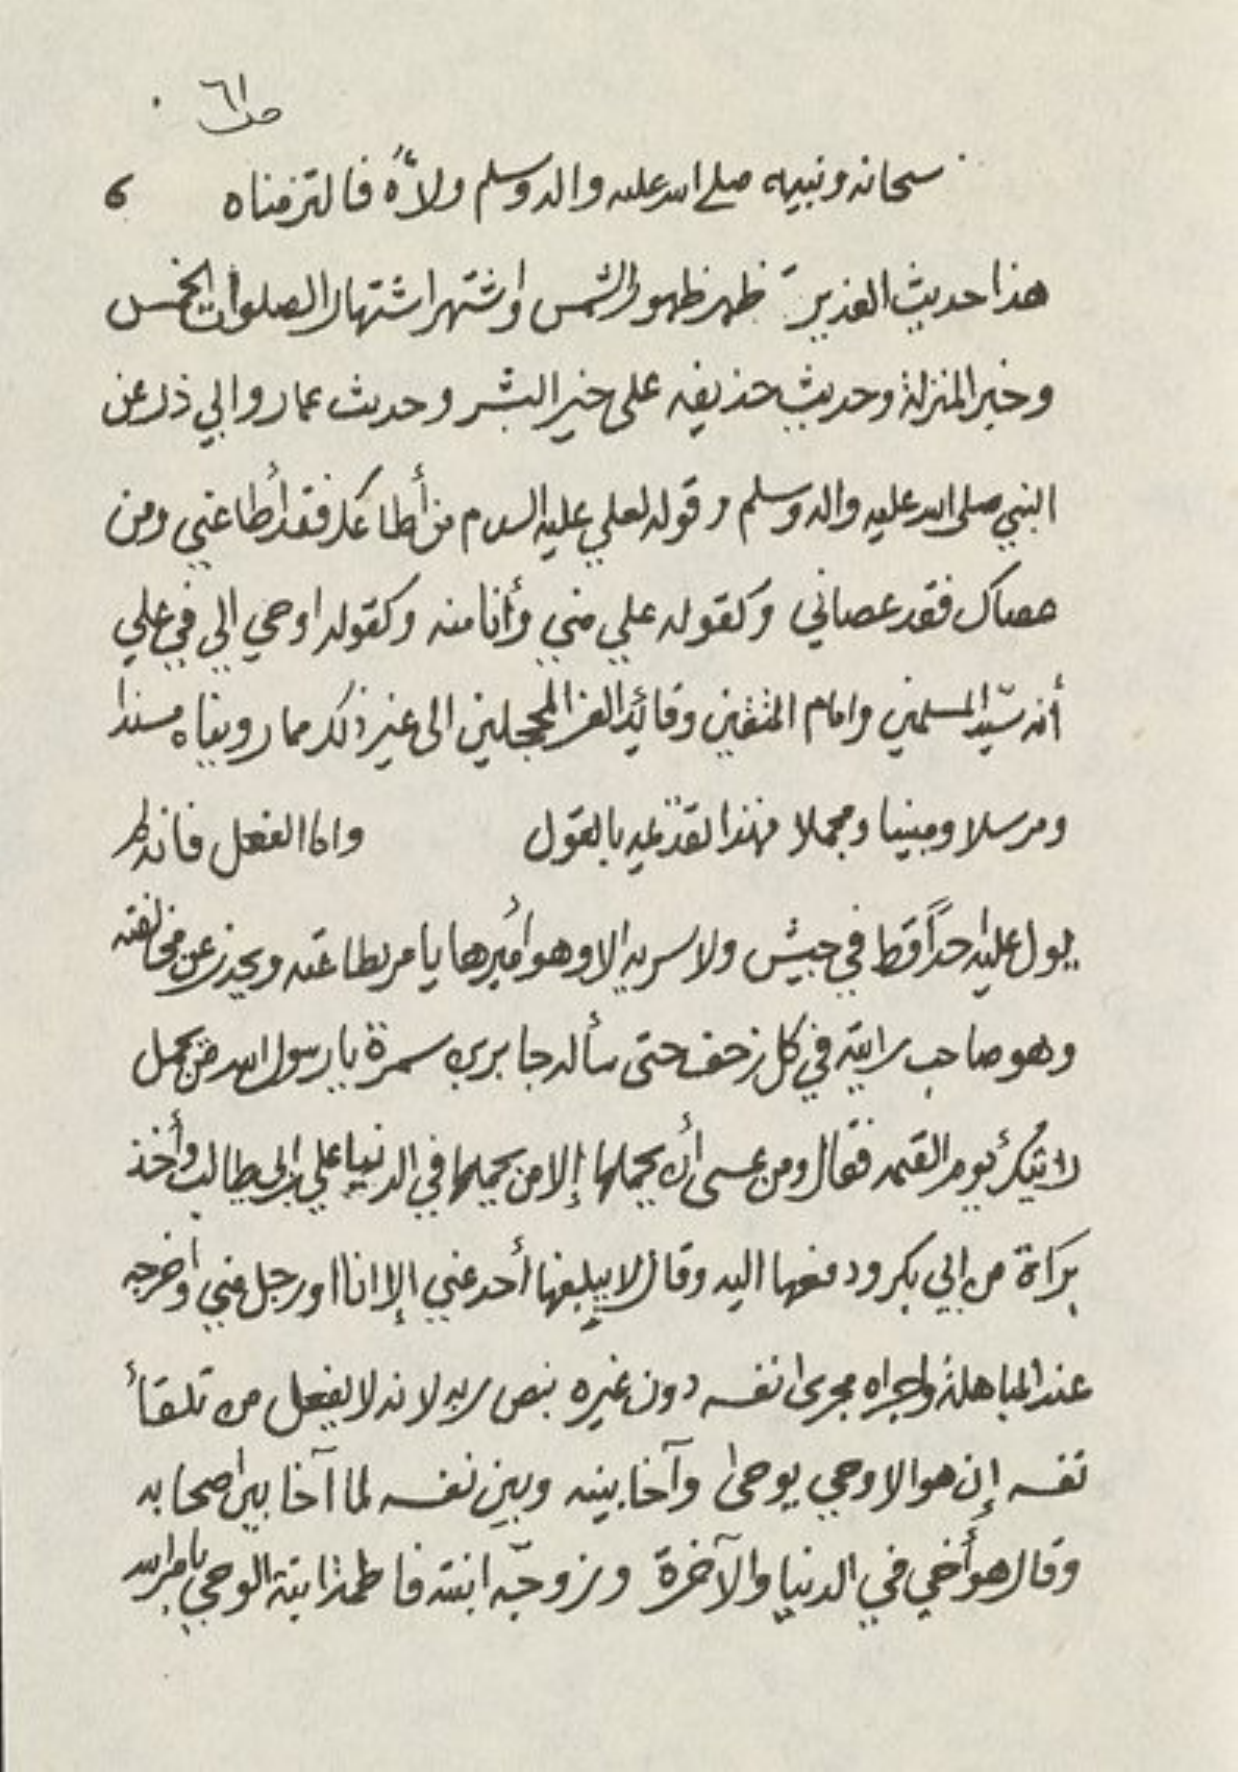 ص ٦١
سبحانه ونبيه صلى الله عليه واله وسلم ولاّه فالتزمناه
هذا حديث الغدير ظهر ظهور الشمس واشتهر اشتهار الصلوات الخمس
وخبر المنزلة وحديث حذيفه على خير البشر وحديث عمار وابي ذر عن
النبي صلى الله عليه واله وسلم وقوله لعلي عليه السلام من أطاعك فقد أطاعني ومن
عصاك فقد عصاني وكقوله علي مني وأنا منه وكقوله اوحي الى في علي
أنه سيّد المسلمين وامام المتقين وقائد الغر المحجلين الى غير ذلك مما رويناه مسندا
ومرسلا ومبينا ومجملا فهذا بالقول واما الفعل فانه لم
يول عليه احداً قط في جيش ولا سريه الا وهو أميرها يامر بطاعته ويحذر عن مخالفته
وهو صاحب رايته في كل زحف حتى سأله جابر بن سمرة يا رسول الله من يحمل
رايتك يوم القيمه فقال ومن عسى أن يحملها إلا من يحملها في الدنيا علي بن ابي طالب وأخذ
برآة من ابي بكر ودفعها اليه وقال لا يبلغها أحد عني إلا انا او رجل مني وأخرجه
عند المباهلة واجراه مجرى نفسه دون غيره بنص ربه لانه لا يفعل من تلقأ
نفسه إن هو الا وحي يوحى وآخا بينه وبين نفسه لما آخا بين اصحابه
وقال هو أخي في الدنيا والآخرة وزوجّه ابنته فاطمة ابنة الوحي بامر الله